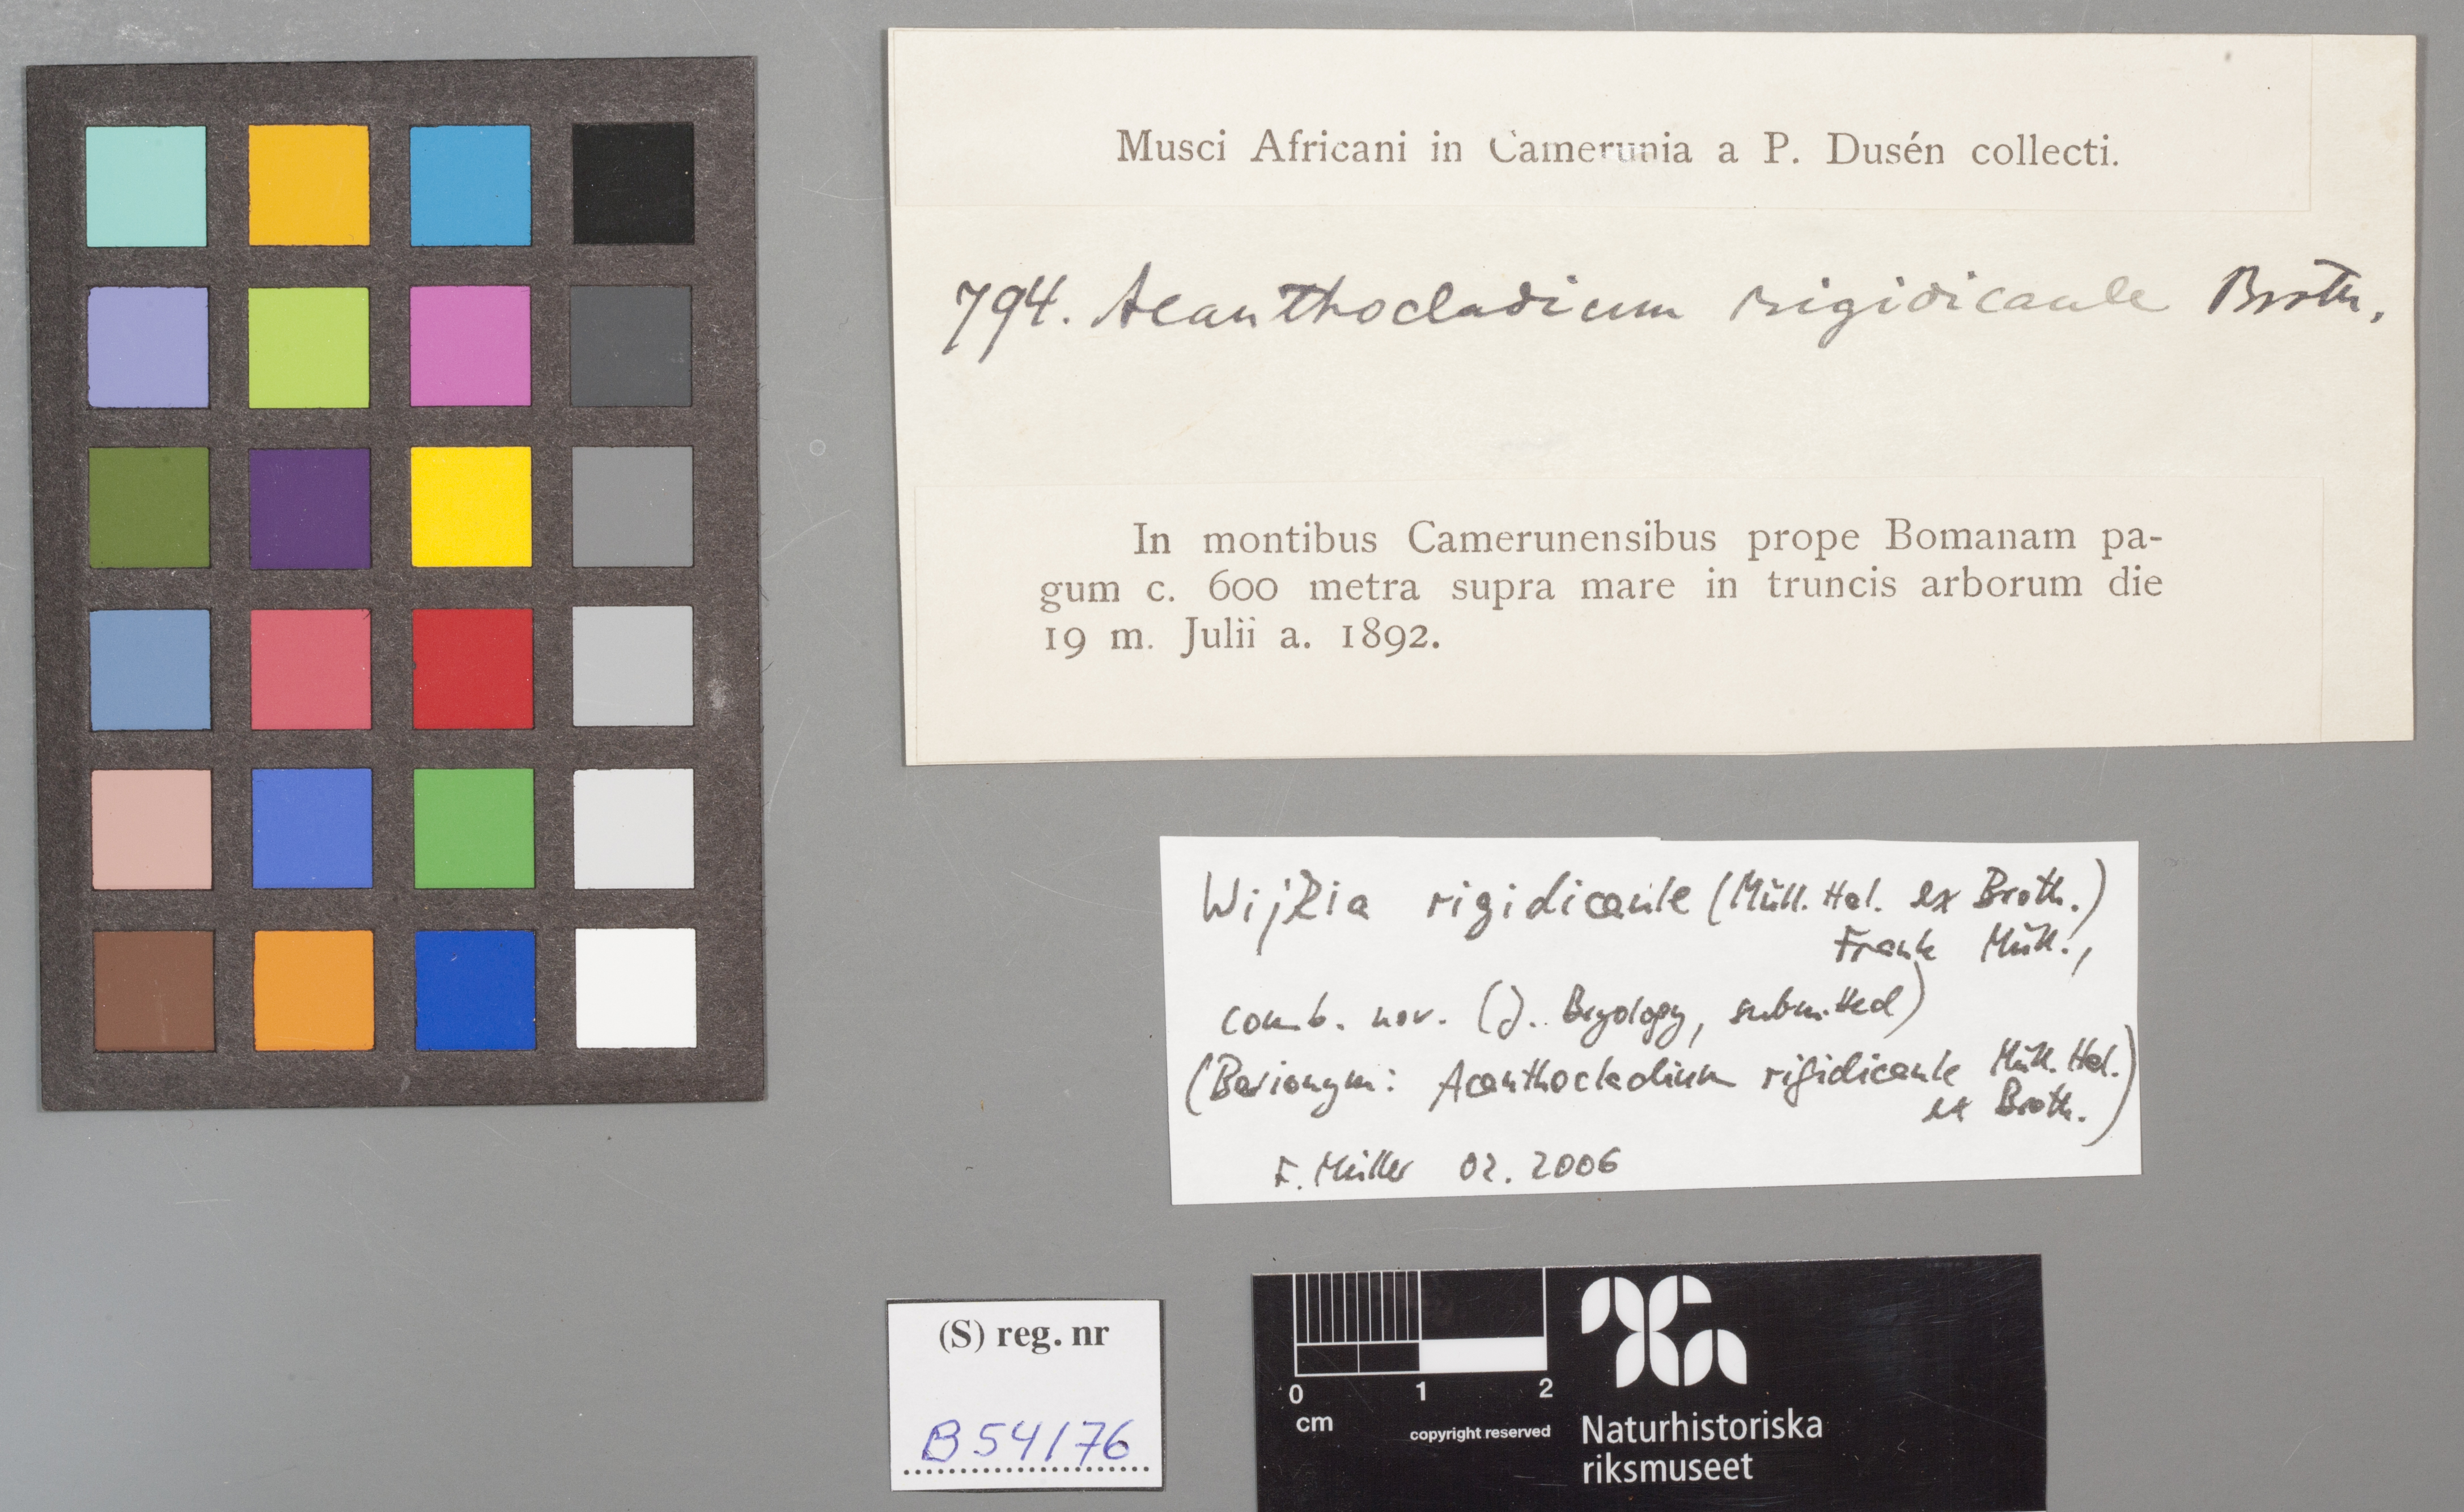 Musci Africani in Camerunia a P. Dusén collecti.
794. Acanthocladium rigidicaule Broth.
In montibus Camerunensibus prope Bomanam pa-
gum c. 600 metra supra mare in truncis arborum die
19 m. Julii a. 1892.
Wijkia rigidicaule (Müll. Hal. ex Broth.)
Frank Müll.,
comb. nov. (J. Bryology, submitted)
(Basionym: Acanthocladium rigidicaule Müll. Hal.
ex Broth.)
F. Müller 02. 2006
(S) reg. nr
B54176
0 1 2
cm
copyright reserved
Naturhistoriska
riksmuseet